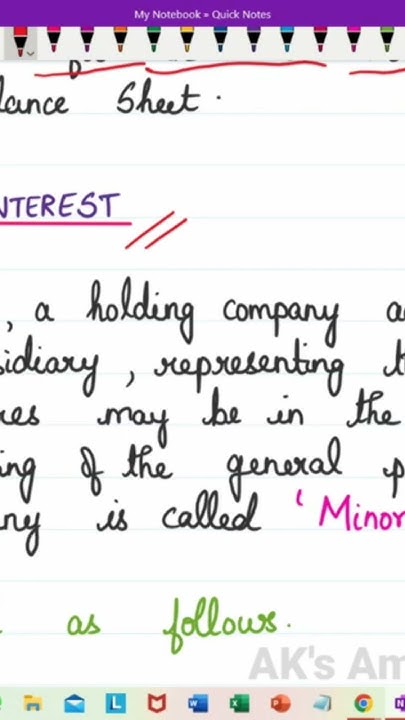 My Notebook » Quick Notes
lance Sheet.
NTEREST
, a holding company a
sidiary, representing t
res may be in the
ing of the general p
ny is called 'Minor
as follows.
AK's Am